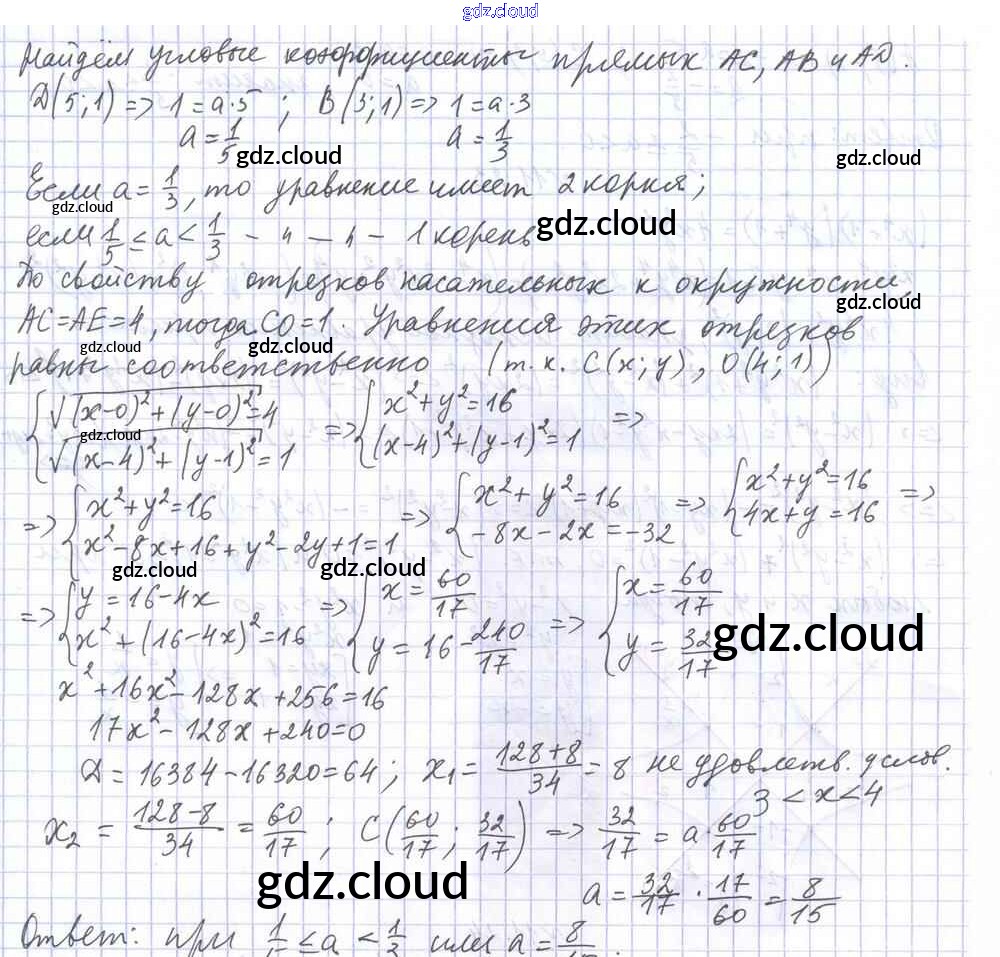 gdz.cloud
Найдём угловые коэффициенты прямых AC, AB и AD.
D(5;1) => 1=a·5 ; B(3;1) => 1=a·3
a=1/5 a=1/3
gdz.cloud gdz.cloud
Если a=1/3, то уравнение имеет 2 корня;
gdz.cloud gdz.cloud
если 1/5 ≤ a < 1/3 - " - " - 1 корень
По свойству отрезков касательных к окружности,
gdz.cloud
AC=AE=4, тогда CO=1. Уравнения этих отрезков
gdz.cloud gdz.cloud
равны соответственно (т.к. C(x;y), O(4;1))
{√(x-0)²+(y-0)²=4 => {x²+y²=16 =>
gdz.cloud
{√(x-4)²+(y-1)²=1 {(x-4)²+(y-1)²=1
=> {x²+y²=16 => {x²+y²=16 => {x²+y²=16 =>
{x²-8x+16+y²-2y+1=1 {-8x-2x=-32 {4x+y=16
gdz.cloud gdz.cloud
=> {y=16-4x => {x=60/17 => {x=60/17
{x²+(16-4x)²=16 {y=16-240/17 {y=32/17
gdz.cloud
x²+16x²-128x+256=16
17x²-128x+240=0
D=16384-16320=64; x₁=(128+8)/34=8 не удовлетв. услов.
3<x<4
x₂=(128-8)/34=60/17; C(60/17;32/17) => 32/17=a·60/17
gdz.cloud
a=32/17·17/60=8/15
Ответ: при 1/5≤a<1/3 или a=8/15.